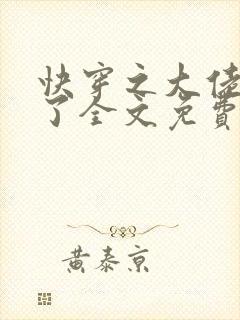 快穿之大佬
了全文免費
黄泰京